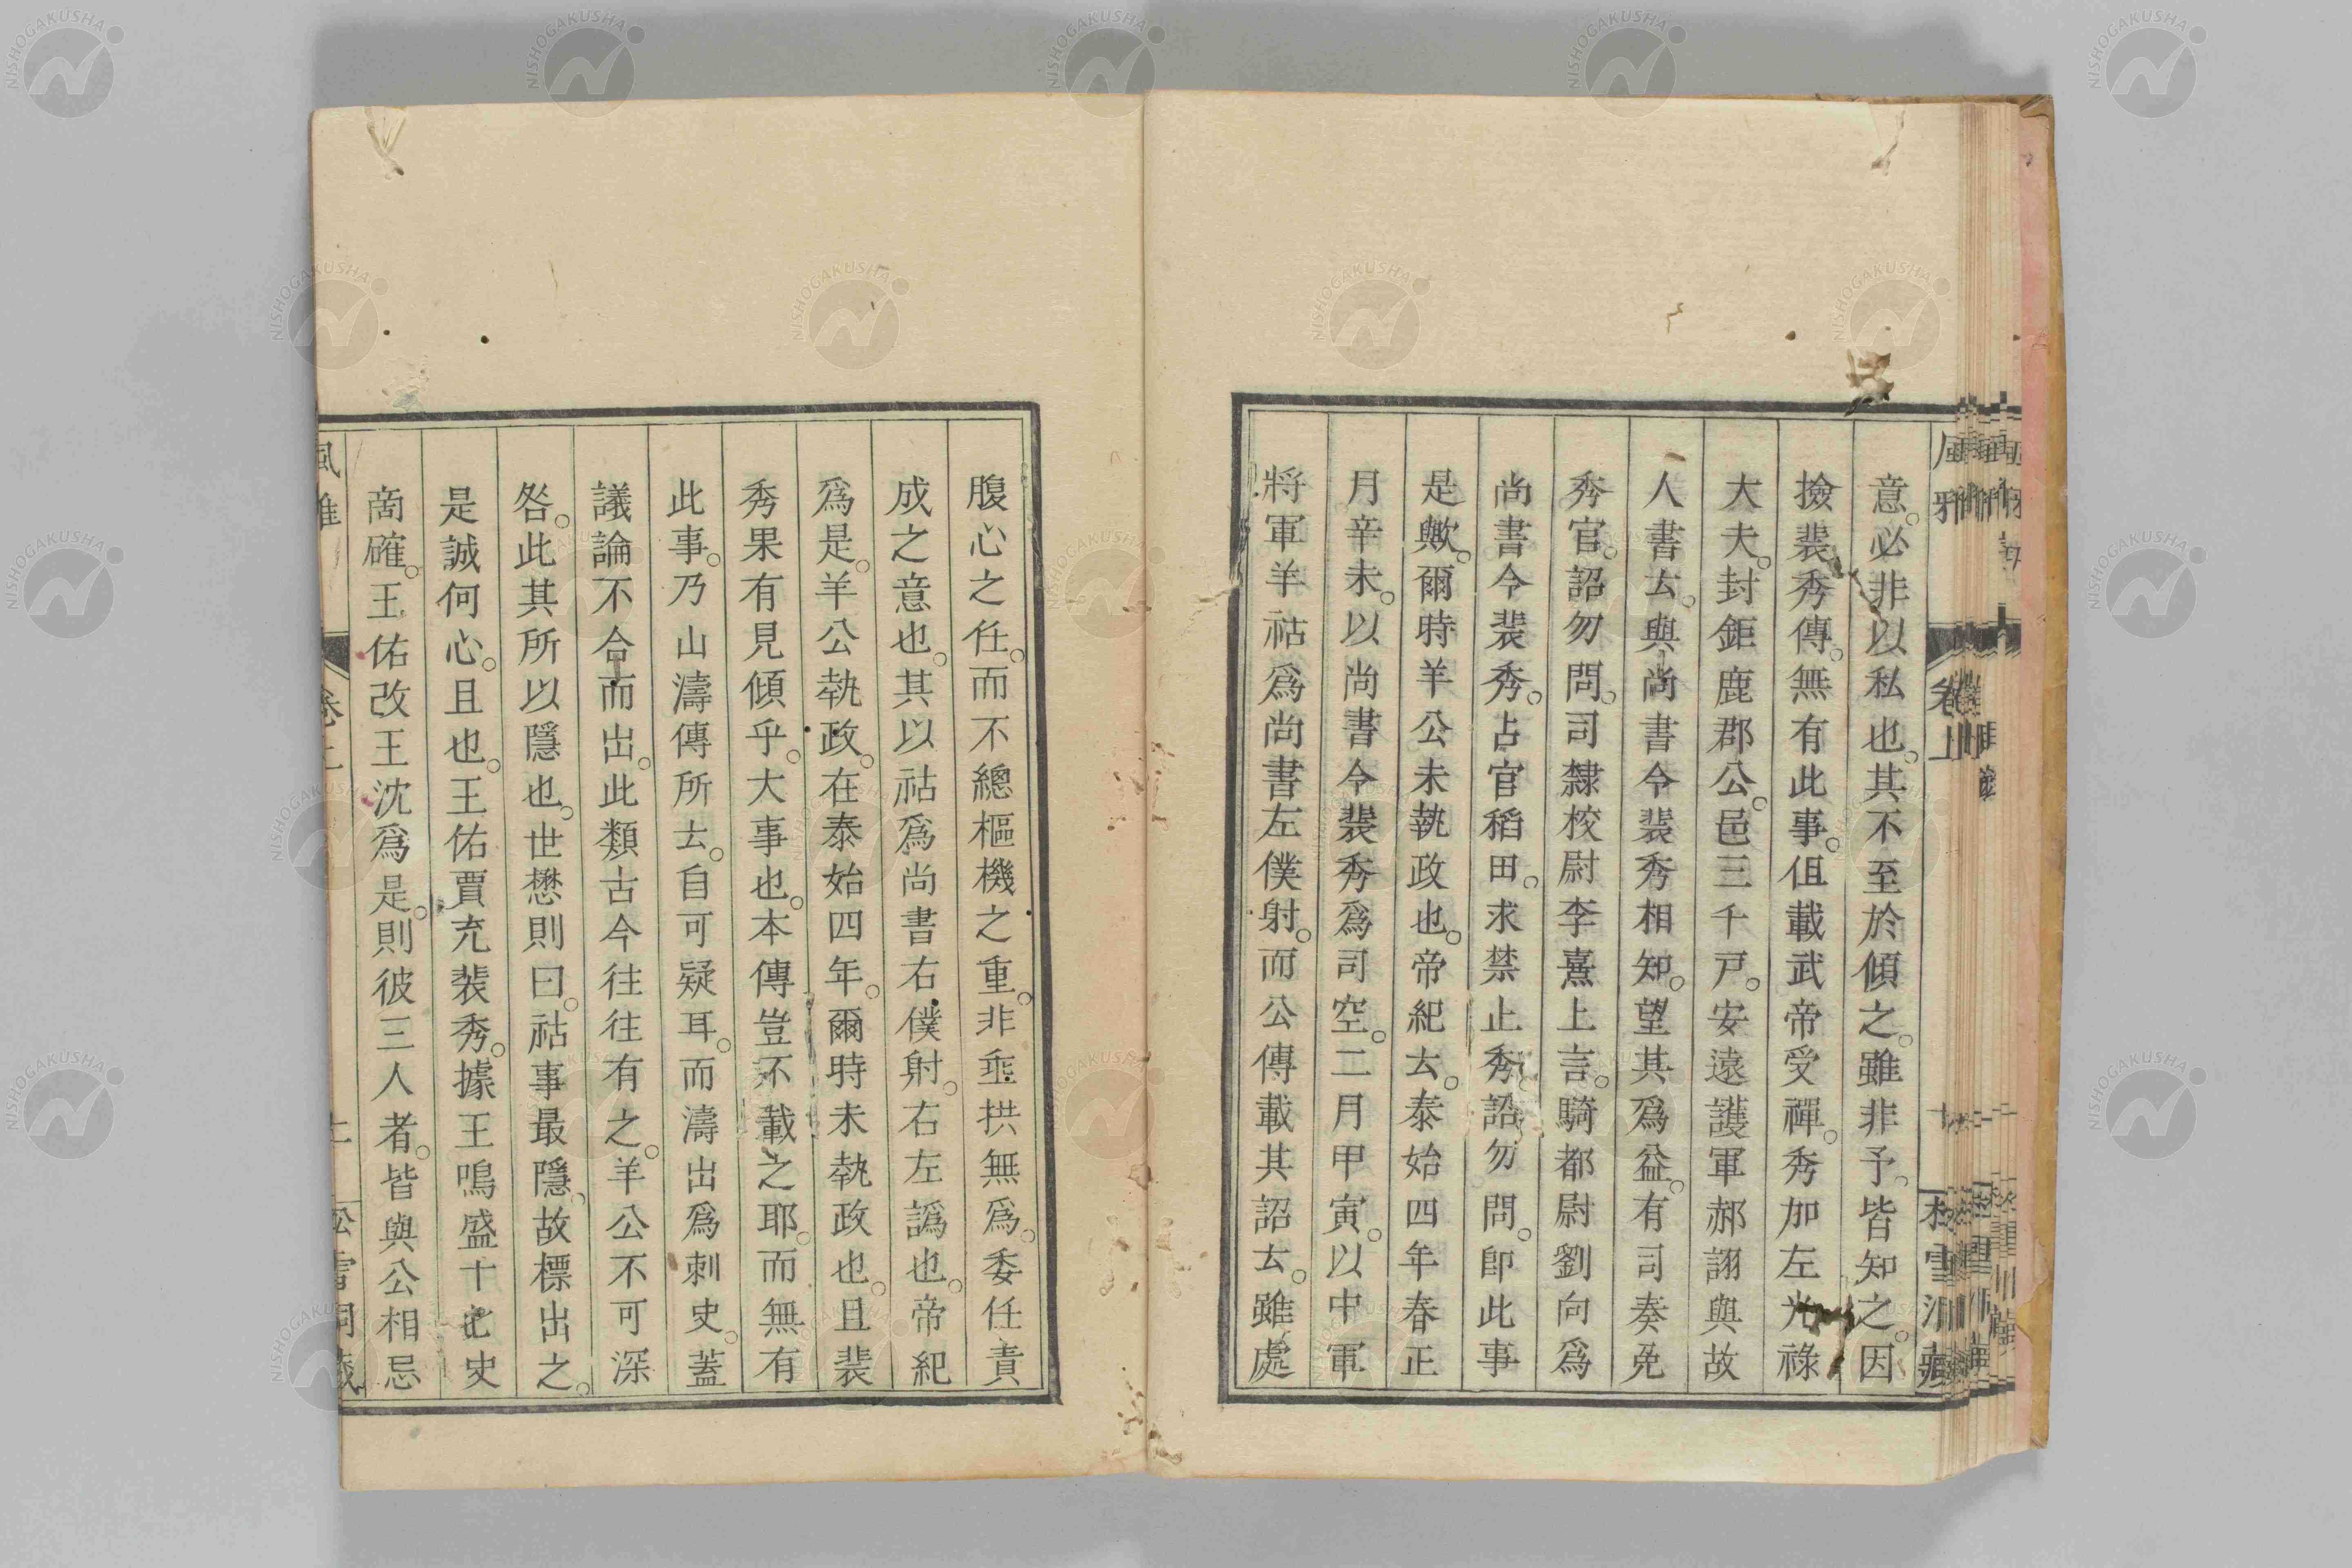 意。必非以私也。其不至於傾之。雖非予。皆知之。因
撿裴秀傳。無有此事。但載武帝受禪。秀加左光祿
大夫。封鉅鹿郡公。邑三千戶。安遠護軍郝詡與故
人書云。與尚書令裴秀相知。望其爲益。有司奏免
秀官。詔勿問。司隸校尉李憙上言。騎都尉劉向爲
尚書令裴秀。占官稻田。求禁止秀。詔勿問。卽此事
是歟。爾時羊公未執政也。帝紀云。泰始四年春正
月辛未。以尚書令裴秀爲司空。二月甲寅。以中軍
將軍羊祜爲尚書左僕射。而公傳載其詔云。雖處
腹心之任。而不總樞機之重。非垂拱無爲。委任責
成之意也。其以祜爲尚書右僕射。右左譌也。帝紀
爲是。羊公執政。在泰始四年。爾時未執政也。且裴
秀果有見傾乎。大事也。本傳豈不載之耶。而無有
此事。乃山濤傳所云。自可疑耳。而濤出爲刺史。蓋
議論不合而出。此類古今往往有之。羊公不可深
咎。此其所以隱也。世懋則曰。祜事最隱。故標出之。
是誠何心。且也。王佑賈充裴秀。據王鳴盛十七史
啇確。王佑改王沈爲是。則彼三人者。皆與公相忌